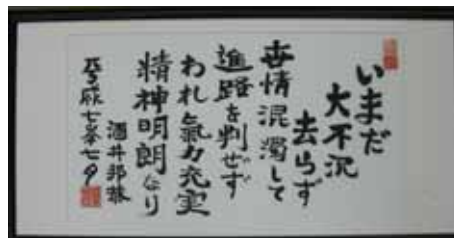 いまだ
大不況
去らず
世情混濁して
進路を判ぜず
われ氣力充実
精神明朗なり
酒井邦雄
平成七年七夕